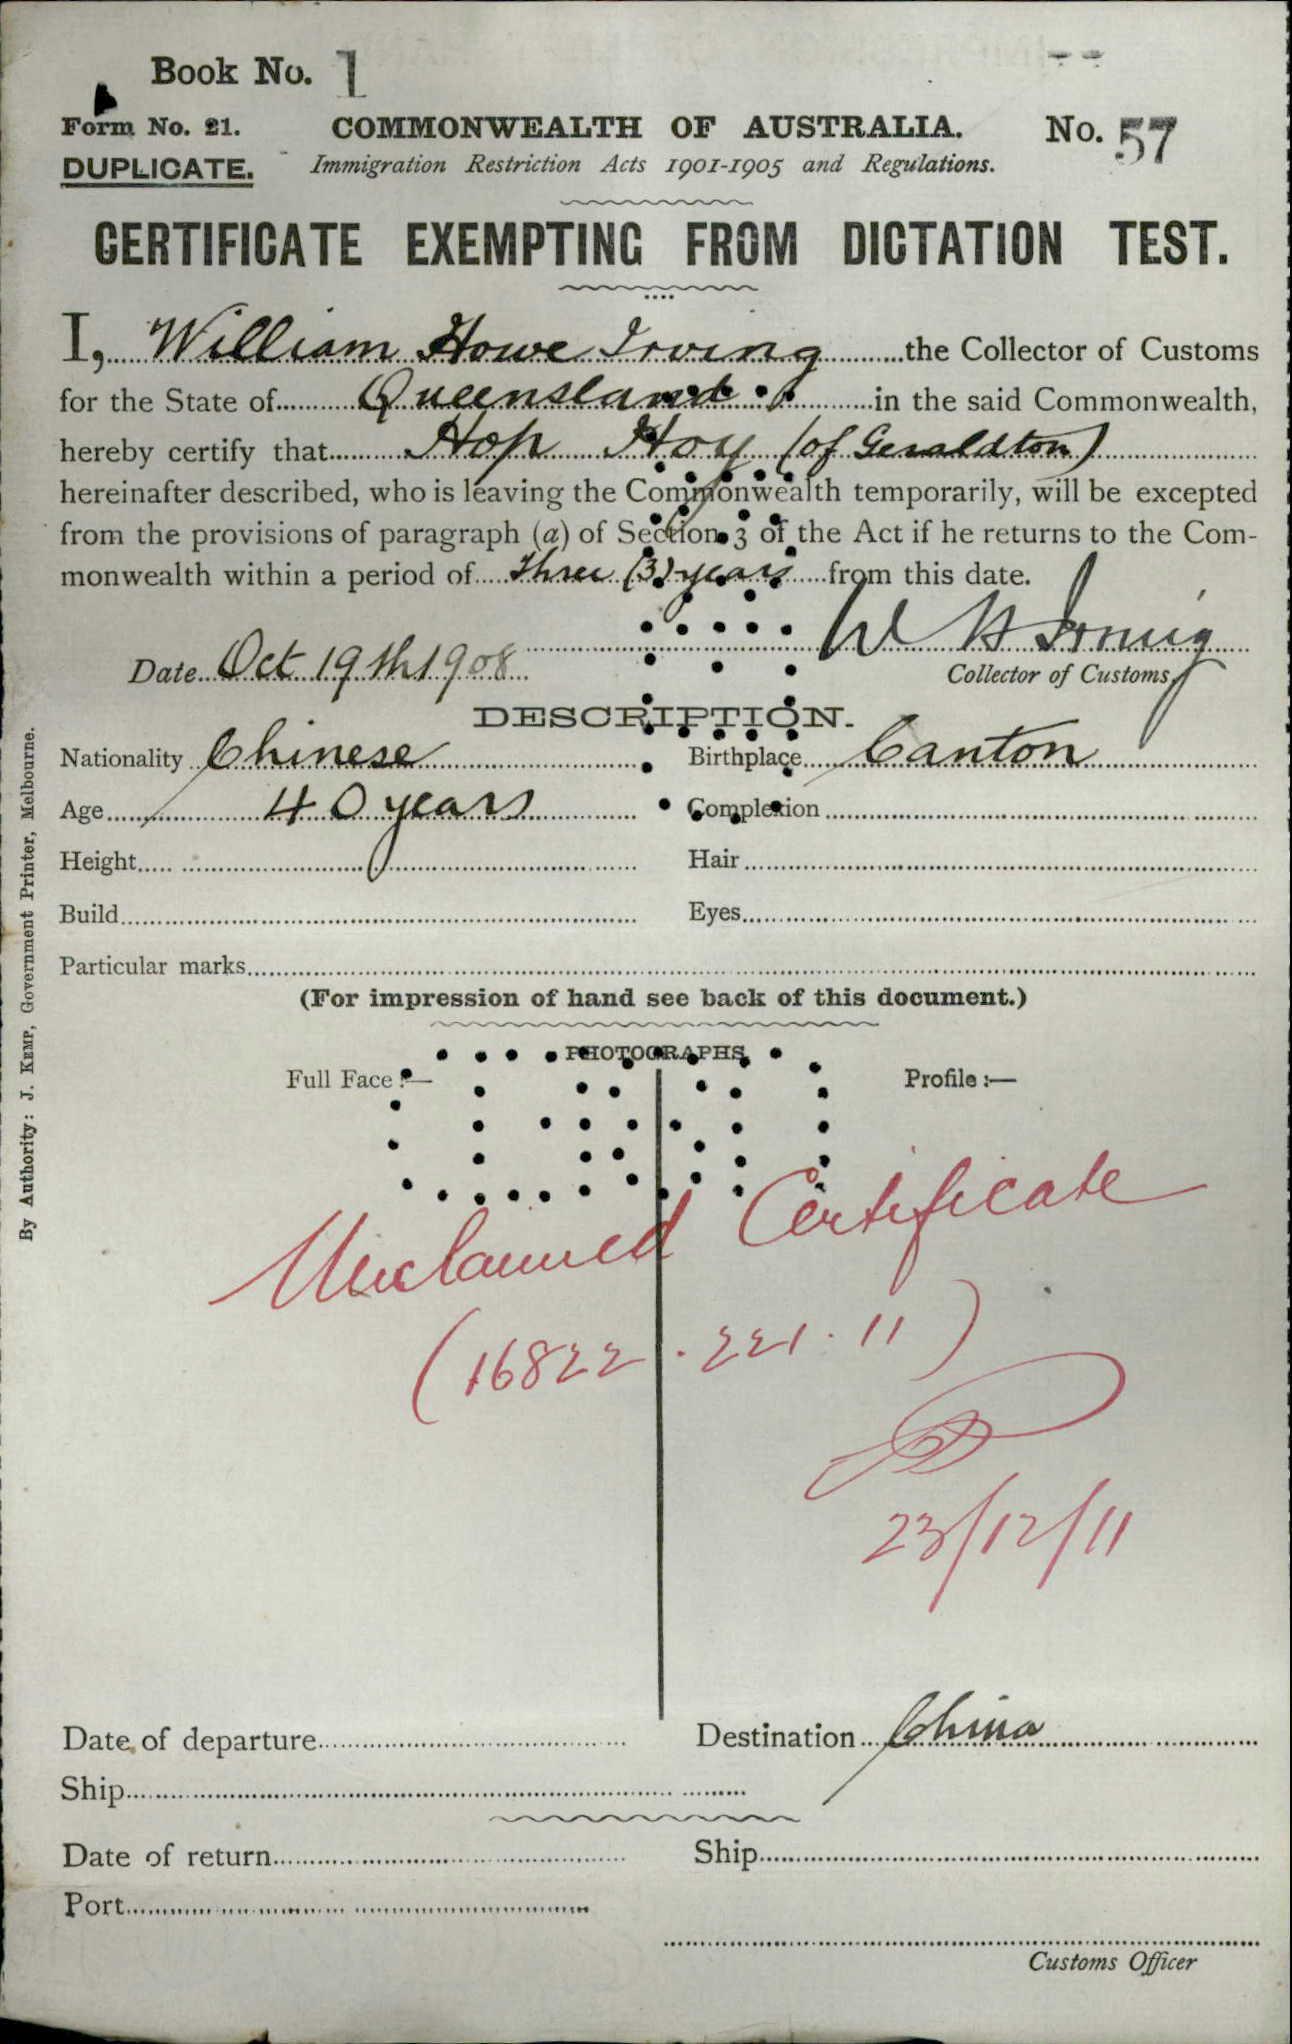 Book No. 1
Form No. 21. COMMONWEALTH OF AUSTRALIA. No. 57
DUPLICATE. Immigration Restriction Acts 1901-1905 and Regulations.
CERTIFICATE EXEMPTING FROM DICTATION TEST.
I, William Howe Irving the Collector of Customs
for the State of Queensland in the said Commonwealth,
hereby certify that Hop Hoy (of Geraldton)
hereinafter described, who is leaving the Commonwealth temporarily, will be excepted
from the provisions of paragraph (a) of Section 3 of the Act if he returns to the Com-
monwealth within a period of Three (3) years from this date.
W H Irving
Date Oct 19th 1908
Collector of Customs.
DESCRIPTION.
Nationality Chinese Birthplace Canton
Age 40 years Complexion
Height Hair
Build Eyes
Particular marks
(For impression of hand see back of this document.)
PHOTOGRAPHS
Full Face :— Profile :—
Unclaimed Certificate
(16822 . 221 . 11)
23/12/11
Date of departure Destination China
Ship
Date of return Ship
Port
Customs Officer
By Authority: J. KEMP, Government Printer, Melbourne.